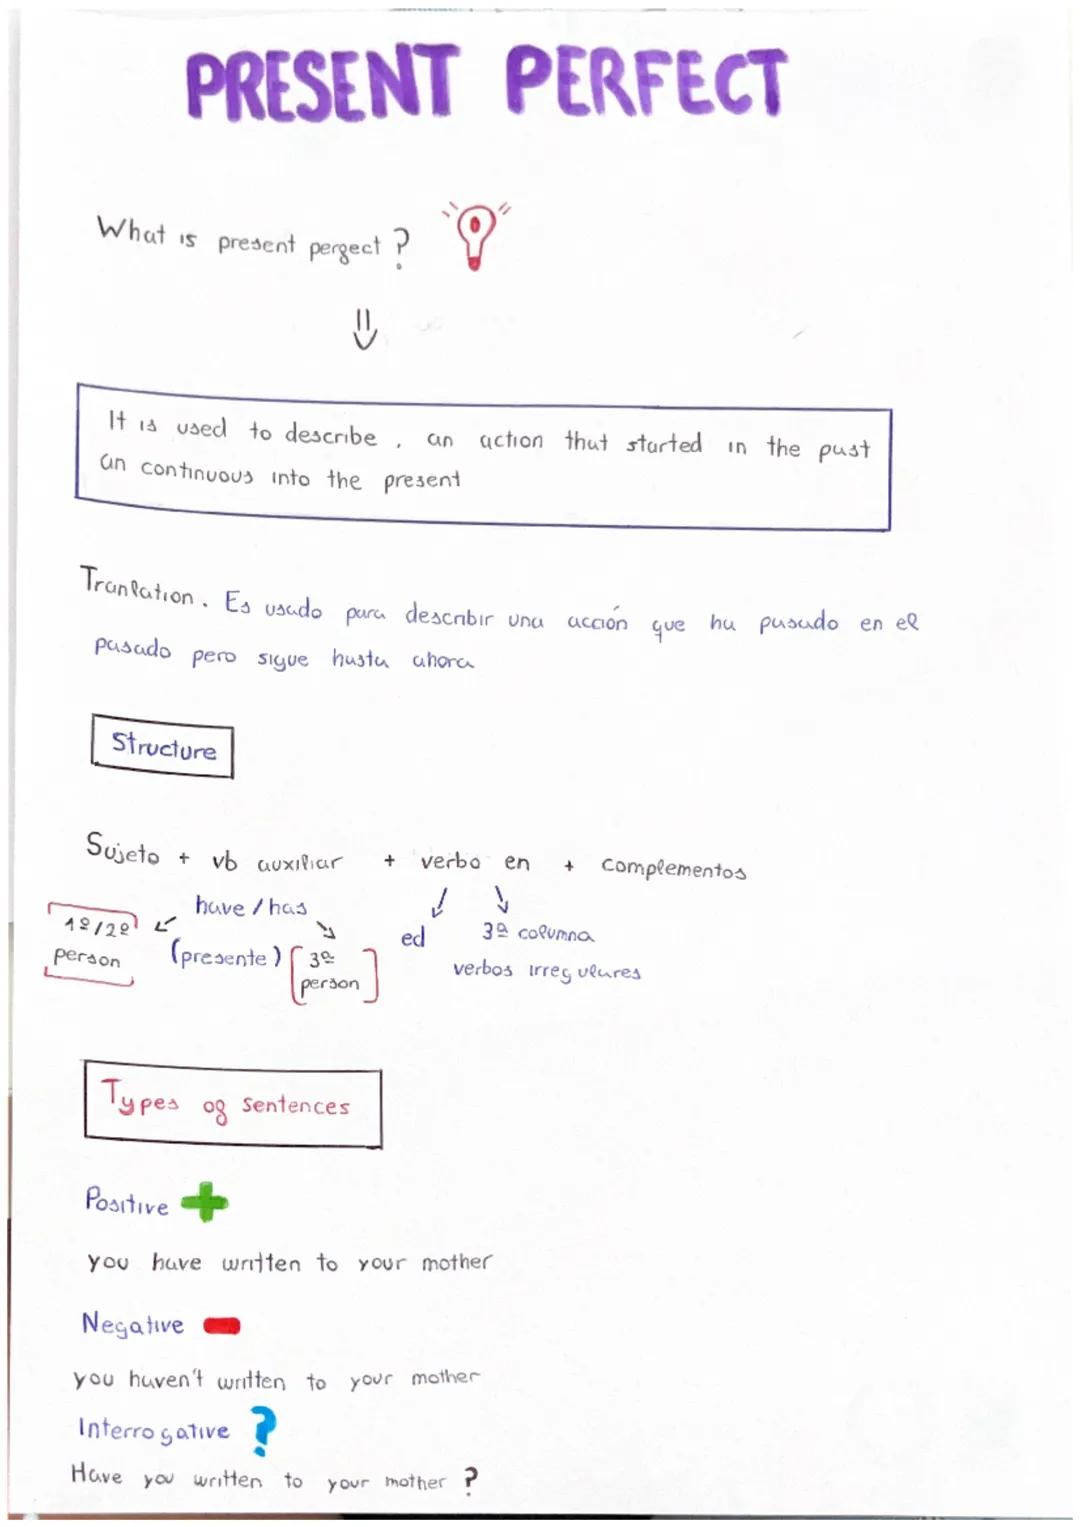 PRESENT PERFECT
What is present pergect ?
It is used to describe, an action that started in the past
an continuous into the present
Tranlation. Es usado para describir una acción que ha pasado en el
pasado pero sigue hasta ahora
Structure
Sujeto + vb auxiliar + verbo en + complementos
have / has
1º/2º person
(presente)
3º person
ed
3ª columna
verbos irregulares
Types og sentences
Positive +
you have written to your mother
Negative -
you haven't written to your mother
Interrogative ?
Have you written to your mother ?